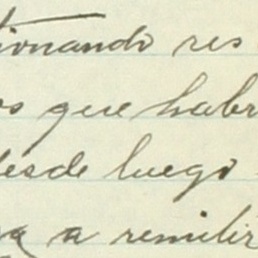 cionando res
os que habr
desde luego
a a remitir